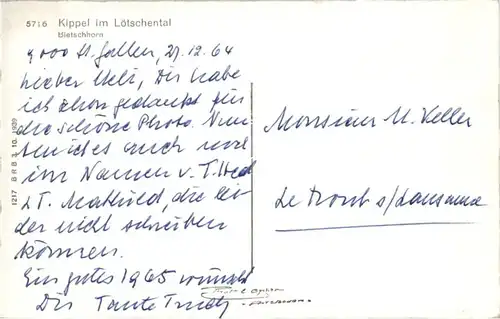 5716 Kippel im Lötschental
Bietschhorn
9000 St. Gallen, 27.12.64
Lieber Ueli, Dir habe
ich schon gedankt für
die schöne Photo. Nun
tu ich es auch noch
im Namen v. T. Hed
& T. Mathild, die lei-
der nicht schreiben
können.
Ein gutes 1965 wünscht
Dir Tante Trudy
Monsieur U. Keller
Le Mont s/Lausanne
1217 B R B 3. 10. 1939